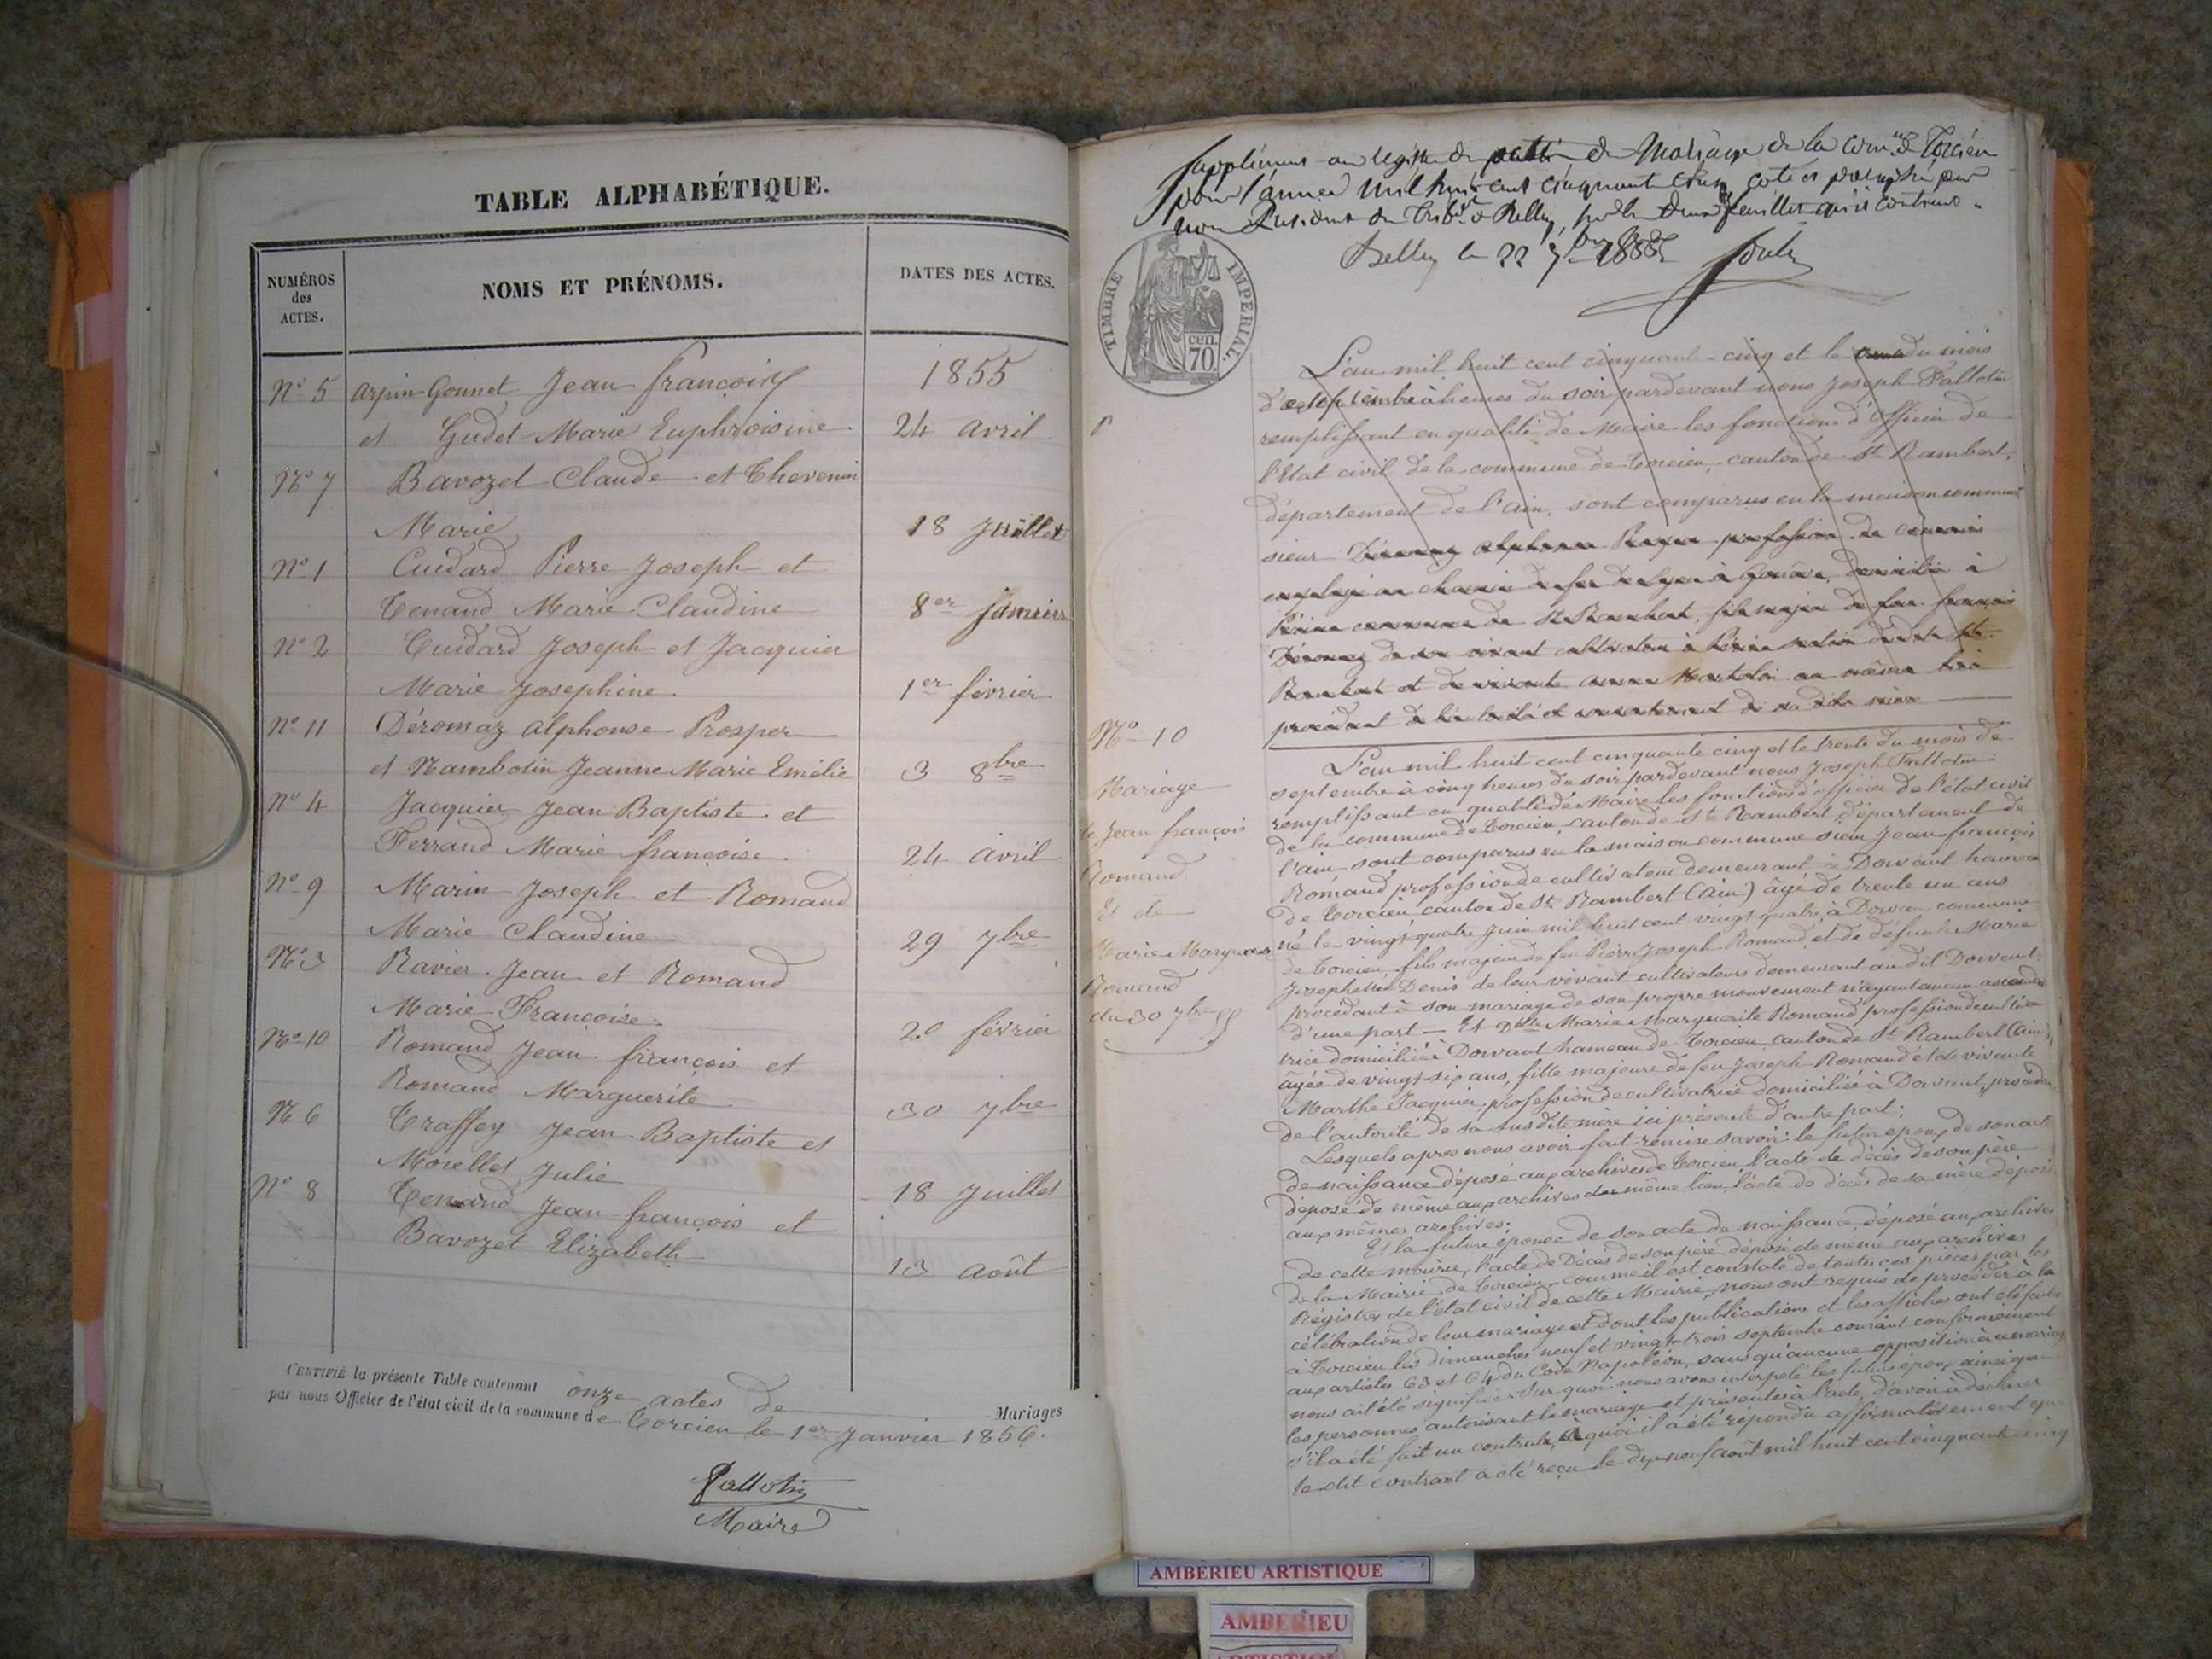 TABLE ALPHABÉTIQUE.
NUMÉROS
des
ACTES.
NOMS ET PRÉNOMS.
DATES DES ACTES.
1855
N° 5 Arpin-Gonnet Jean françois
et Gudet Marie Euphroisine 24 avril
N° 7 Bavozet Claude et Thevenin
Marie 18 Juillet
N° 1 Cuidard Pierre Joseph et
Tenand Marie Claudine 8er janvier
N° 2 Cuidard Joseph et Jacquier
Marie Josephine. 1er février
N° 11 Déromaz Alphonse Prosper
et Nambotin Jeanne Marie Emélie 3 8bre
N° 4 Jacquier Jean Baptiste et
Ferrand Marie françoise. 24 avril
N° 9 Marin Joseph et Romand
Marie Claudine 29 7bre
N° 3 Ravier Jean et Romand
Marie Françoise. 20 février
N° 10 Romand Jean françois et
Romand Marguerite 30 7bre
N 6 Traffey Jean Baptiste et
Morellet Julie 18 Juillet
N° 8 Tenand Jean françois et
Bavozet Elizabeth 13 août
CERTIFIÉ la présente Table contenant onze actes de Mariages
par nous Officier de l'état civil de la commune de Torcieu le 1er Janvier 1856.
Fallotin
Maire
Supplément au registre de de Mariage de la comne de Torcieu
pour l'année mil huit cent cinquante cinq coté et paraphé par
nous Président du Tribal de Belley, pour les deux feuillets qu'il contient
Belley le 22 7bre 1855
TIMBRE IMPÉRIAL.
cen.
70.
L'an mil huit cent cinquante-cinq et le du mois
de septembre à heures du soir pardevant nous Joseph Fallotin
remplissant en qualité de Maire les fonctions d'officier de
l'Etat civil de la commune de Torcieu canton de St Rambert,
département de l'ain, sont comparus en la maison commune
sieur Déromaz alphonse profession de
employé au chemin de fer de Lyon à Genève, domicilié à
commune de St Rambert, fils majeur de feu françois
Déromaz de son vivant cultivateur à
Rambert et de vivante au même lieu
procédant de l'autorité et consentement de sa dite mère
N° 10
Mariage
de Jean françois
Romand
Et de
Marie Marguerite
Romand
du 30 7bre 55
L'an mil huit cent cinquante cinq et le trente du mois de
septembre à cinq heures du soir pardevant nous Joseph Fallotin
remplissant en qualité de Maire les fonctions d'officier de l'état civil
de la commune de Torcieu, canton de St Rambert, département de
l'ain, sont comparus en la maison commune sieur Jean françois
Romand, profession de cultivateur demeurant à Dorvant hameau
de Torcieu canton de St Rambert (Ain) âgé de trente un ans
né le vingt quatre Juin mil huit cent vingt quatre, à Dorvan commune
de Torcieu, fils majeur de feu Pierre Joseph Romand et de défunte Marie
Josephette Denis de leur vivant cultivateurs demeurant au dit Dorvant:
procédant à son mariage de son propre mouvement n'ayant aucun ascendant
d'une part — Et Dlle Marie Marguerite Romand profession de cultiva
trice domiciliée à Dorvant hameau de Torcieu canton de St Rambert (Ain),
âgée de vingt six ans, fille majeure de feu Joseph Romand et de vivante
Marthe Jacquier, profession de cultivatrice domiciliée à Dorvant, procédant
de l'autorité de sa susdite mère ici présente d'autre part;
Lesquels apres nous avoir fait remise savoir: le futur epoux de son acte
de naissance déposé aux archives de Torcieu, l'acte de décès de son père
déposé de même aux archives du même lieu, l'acte de décès de sa mère déposé
aux mêmes archives;
Et la future épouse de son acte de naissance, déposé aux archives
de cette mairie, l'acte de Décès de son père déposé de même aux archives
de la Mairie de Torcieu - comme il est constaté de toutes ces pièces par les
Régistres de l'état civil de cette Mairie, nous ont requis de procéder à la
célébration de leur mariage et dont les publications et les affiches ont été faites
à Torcieu les dimanches neuf et vingt-trois septembre courant conformément
aux articles 63 et 64 du Code Napoléon, sans qu'aucune opposition à ce mariage
nous ait été signifiée. Sur quoi nous avons interpelé les futurs époux ainsi que
les personnes autorisant le mariage et présentes à l'acte, d'avoir à déclarer
s'il a été fait un contrat, à quoi il a été répondu affirmativement que
le dit contrat a été reçu le dix neuf août mil huit cent cinquante-cinq
AMBÉRIEU ARTISTIQUE
AMBERIEU
ARTISTIQUE